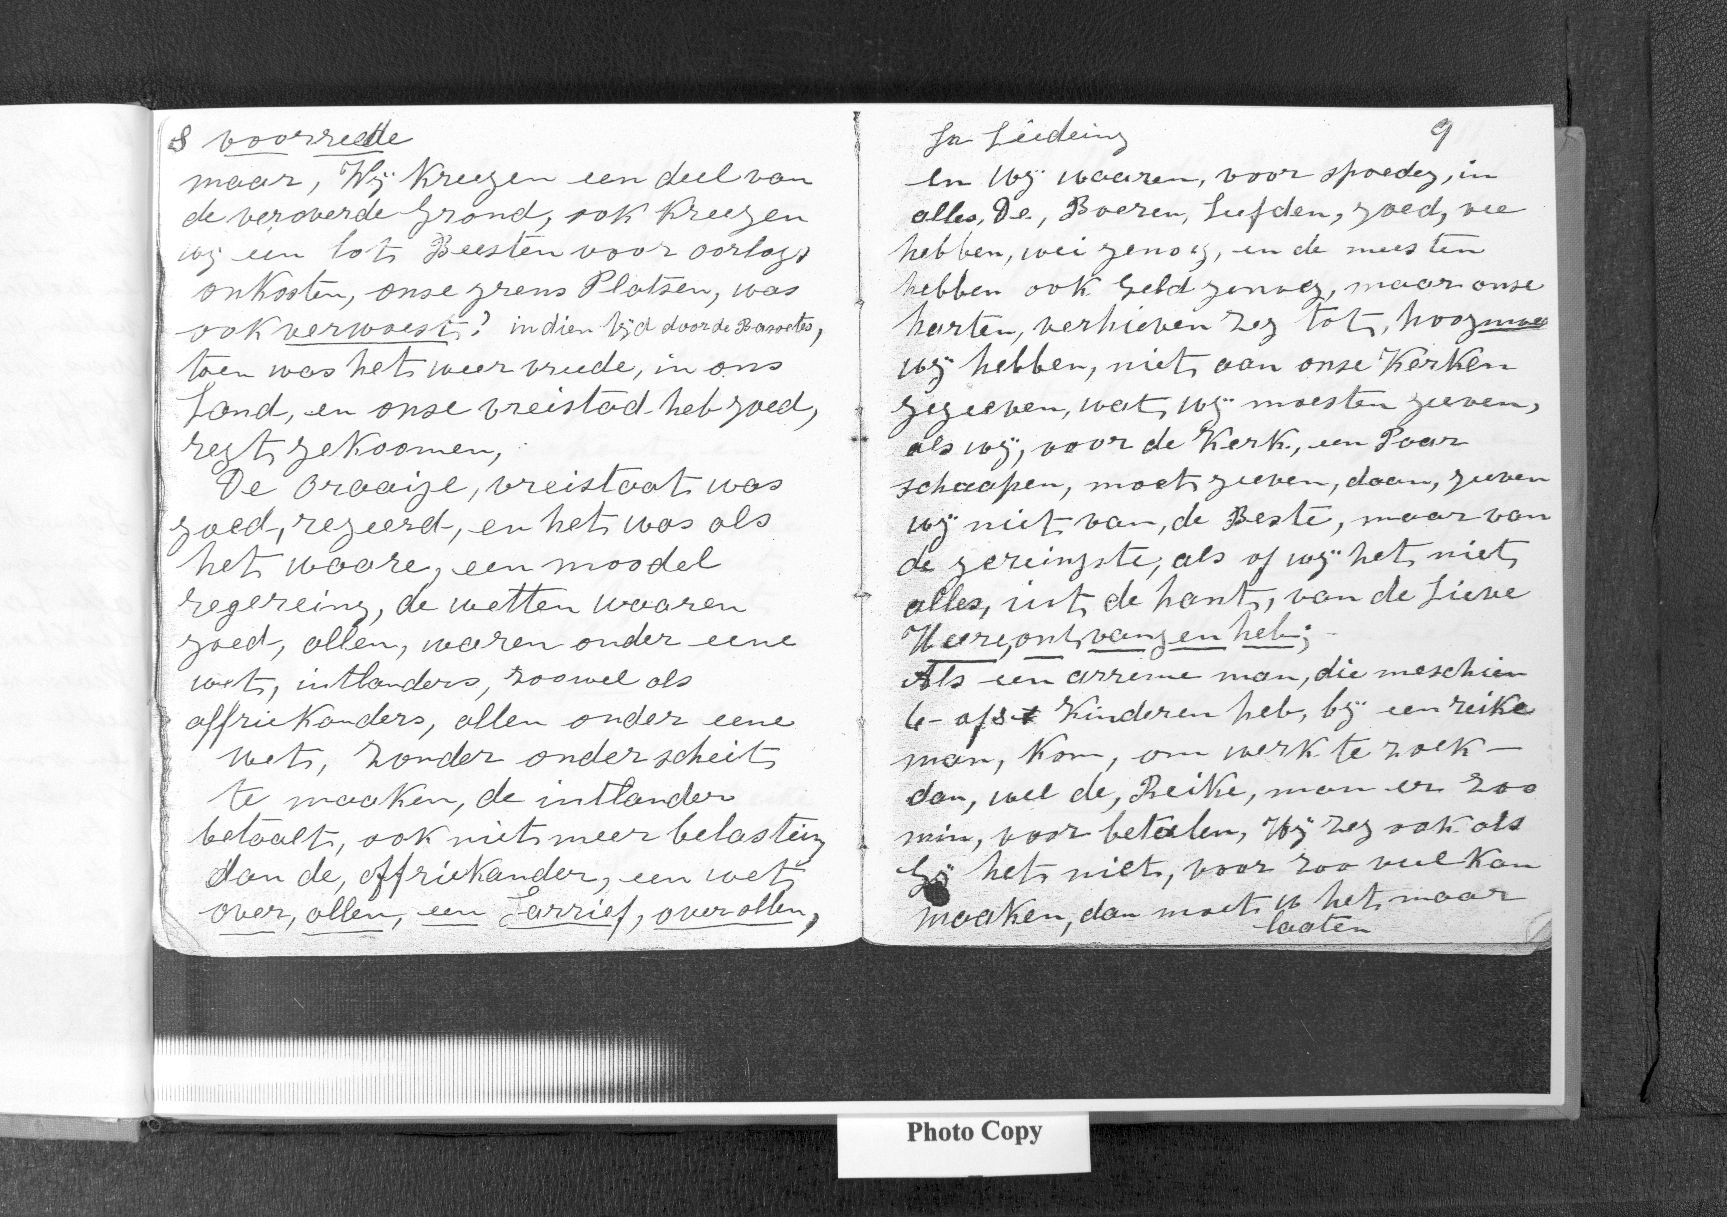 8 voorrede
maar, Wij kreegen een deel van
de veroverde Grond, ook kreegen
wij een lot Beesten voor oorlogs
onkosten, onse grens Platsen, was
ook verwoest? in dien tijd door de Basoetos,
toen was het weer vreede, in ons
Land, en onse vreistad heb goed,
regt gekoomen,
De oraaije, vreistaat was
goed, regeerd, en het was als
het waare, een moodel
regereing, de wetten waaren
goed, allen, waren onder eene
wet, intlanders, zoowel als
affriekanders, allen onder eene
wet, zonder onderscheit
te maaken, de intlander
betaalt, ook niet meer belasteing
dan de, affriekander, een wet
over, allen, een Tarrief, over allen,
In Leideing 9
en wij waaren, voor spoedeg, in
alles, De, Boeren, Leefden, goed, vee
hebben, wei genoeg, en de meesten
hebben ook Geld genoeg, maar onse
harten, verhieven zeg tot, hoogmoed
wij hebben, niet aan onse Kerken
gegeeven, wat wij moesten geeven,
als wij, voor de Kerk, een Paar
schaapen, moet geeven, daan, geeven
wij niet van, de Beste, maar van
de gereingste, als of wij het niet
alles, uit de hant, van de Lieve
Heere, ontvangen heb;
Als een arreme man, die meschien
6 - of 8 Kinderen heb, bij een reike
man, Kom, om werk te zoek -
dan, wel de, Reike, man er zoo
min, voor betalen, Hij zeg ook als
Gij het niet, voor zoo veel Kan
maaken, dan moet u het maar
laaten
Photo Copy